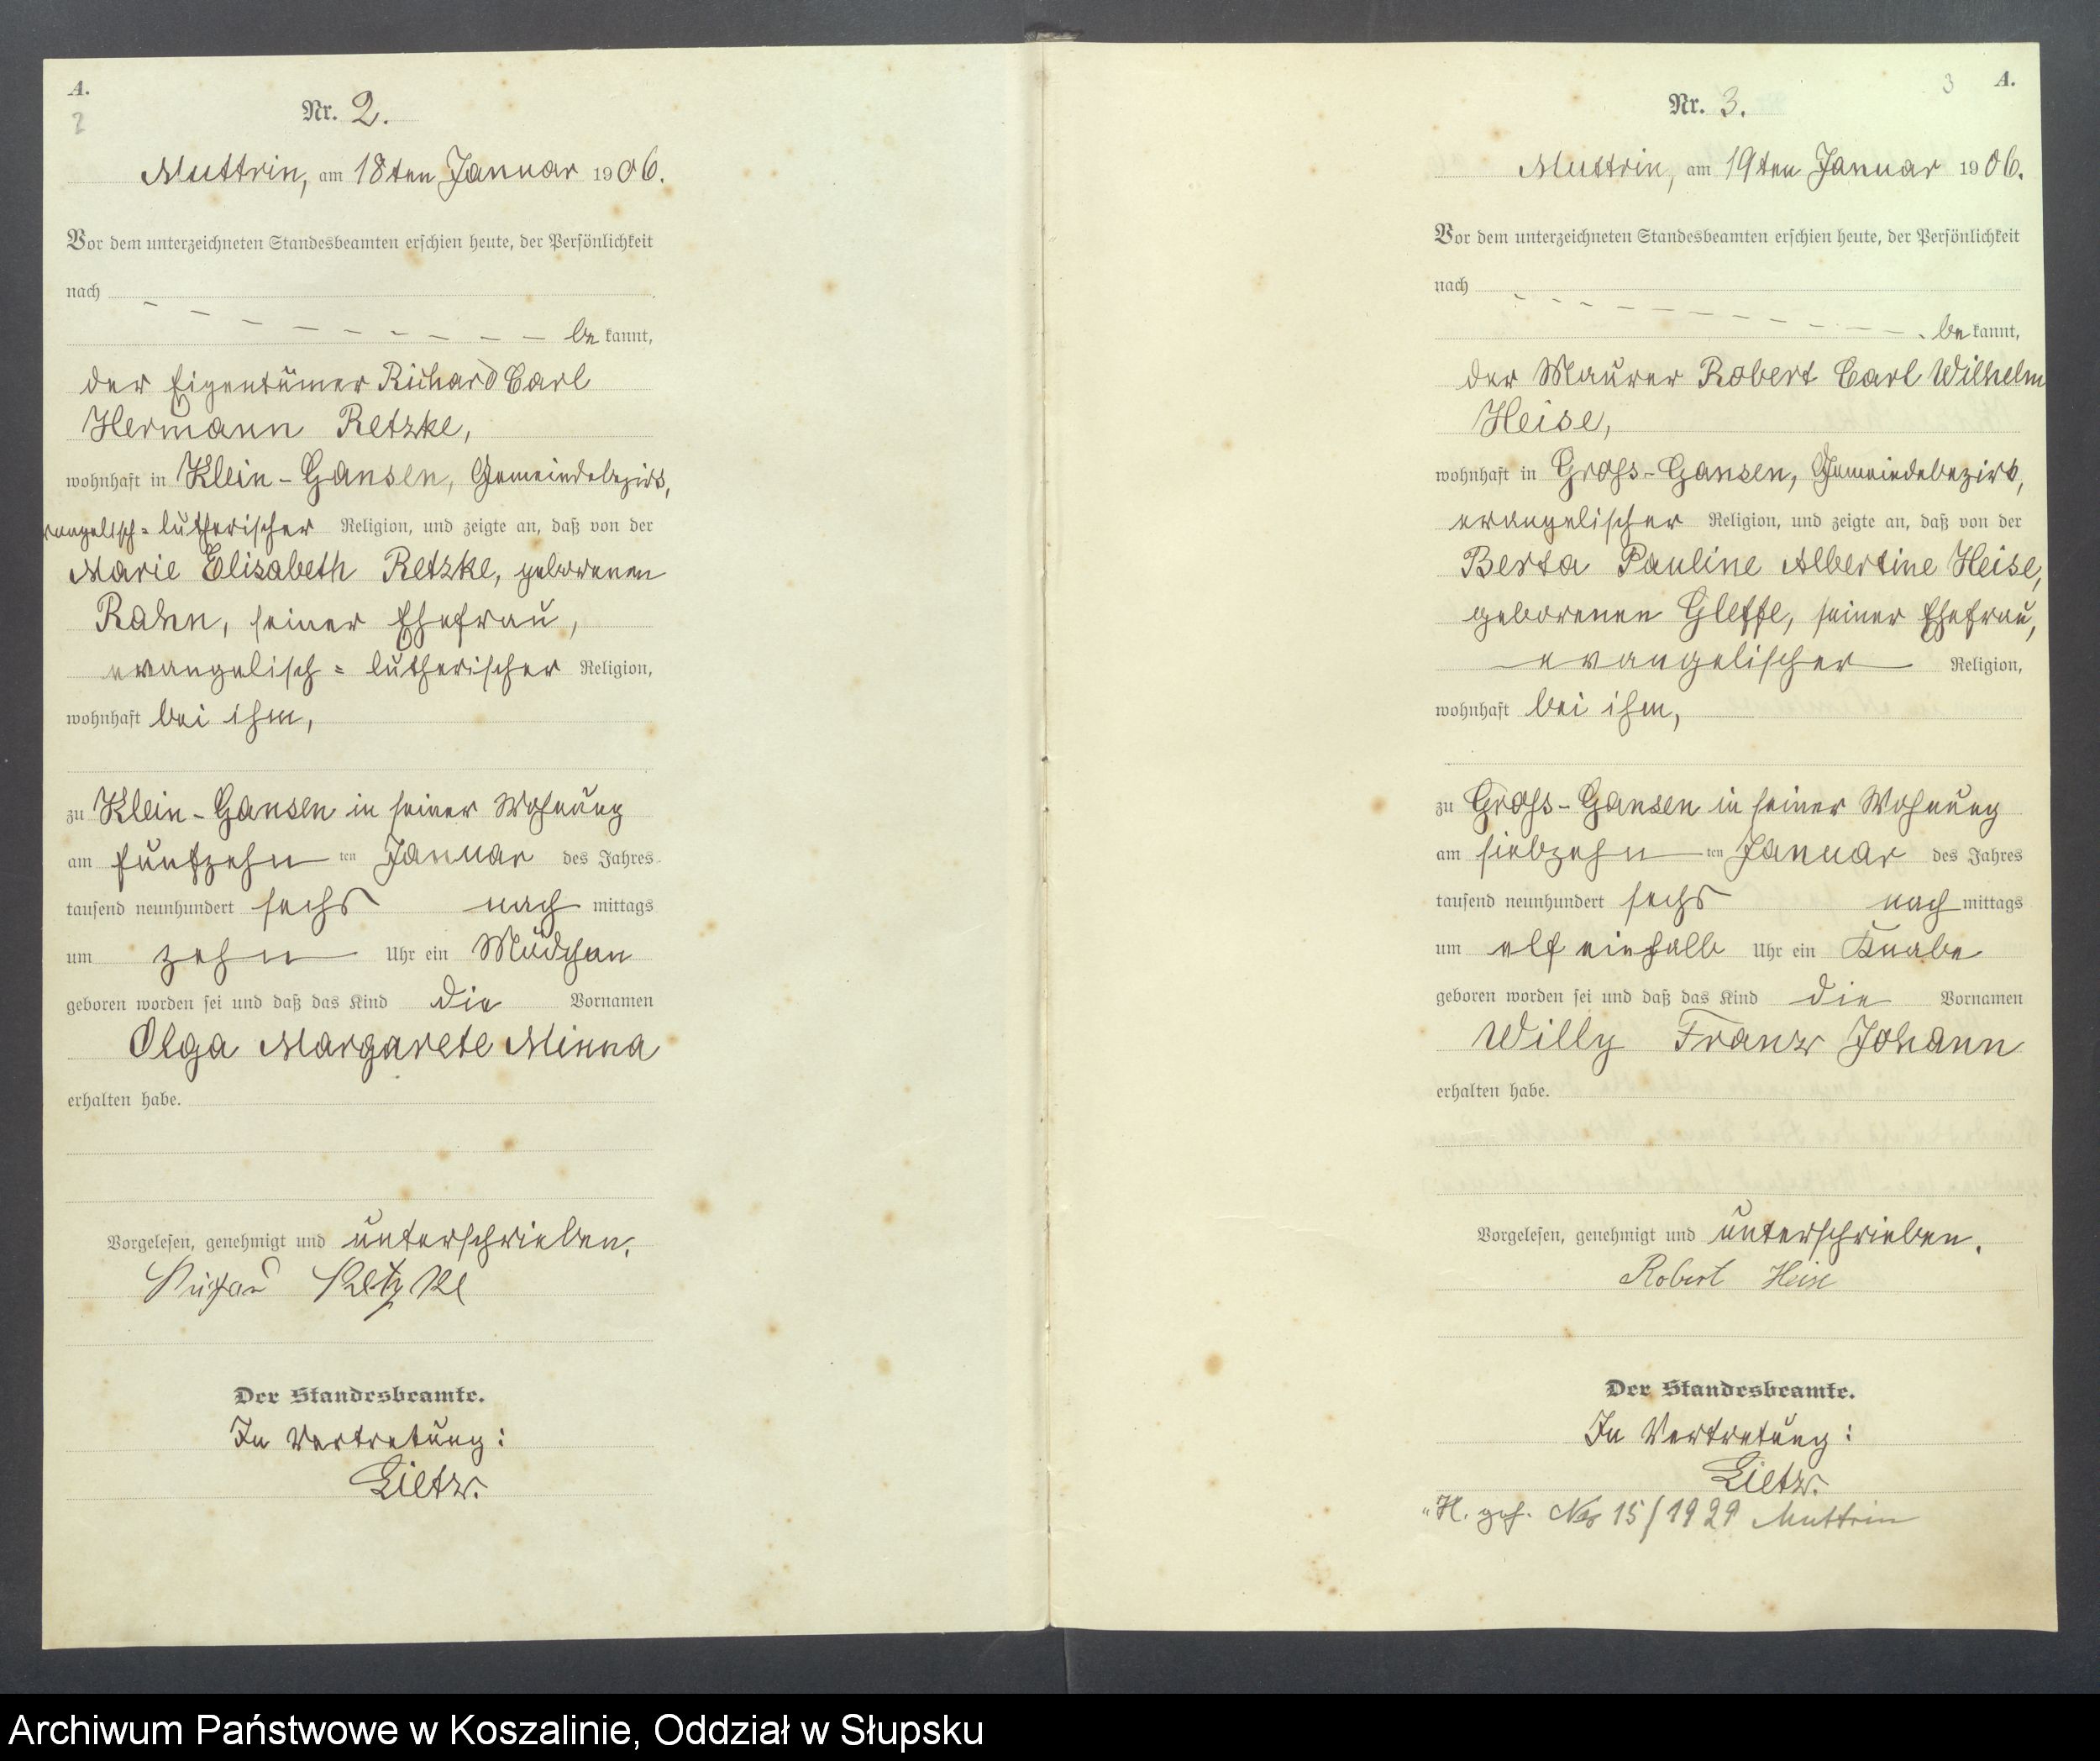 A.
2
Nr. 2.
Muttrin, am 18ten Januar 1906.
Vor dem unterzeichneten Standesbeamten erschien heute, der Persönlichkeit
nach
be kannt,
der Eigentümer Richard Carl
Hermann Retzke,
wohnhaft in Klein-Gansen, Gemeindebezirk,
evangelisch-lutherischer Religion, und zeigte an, daß von der
Marie Elisabeth Retzke, geborenen
Rahn, seiner Ehefrau,
evangelisch-lutherischer Religion,
wohnhaft bei ihm,
zu Klein-Gansen in seiner Wohnung
am fünfzehn ten Januar des Jahres
tausend neunhundert sechs nach mittags
um zehn Uhr ein Mädchen
geboren worden sei und daß das Kind die Vornamen
Olga Margarete Minna
erhalten habe.
Vorgelesen, genehmigt und unterschrieben.
Richard Retzke
Der Standesbeamte.
In Vertretung:
Lietz.
3 A.
Nr. 3.
Muttrin, am 19ten Januar 1906.
Vor dem unterzeichneten Standesbeamten erschien heute, der Persönlichkeit
nach
be kannt,
der Maurer Robert Carl Wilhelm
Heise,
wohnhaft in Gross-Gansen, Gemeindebezirk,
evangelischer Religion, und zeigte an, daß von der
Berta Pauline Albertine Heise,
geborenen Gleffe, seiner Ehefrau,
evangelischer Religion,
wohnhaft bei ihm,
zu Gross-Gansen in seiner Wohnung
am siebzehn ten Januar des Jahres
tausend neunhundert sechs nach mittags
um elf einhalb Uhr ein Knabe
geboren worden sei und daß das Kind die Vornamen
Willy Franz Johann
erhalten habe.
Vorgelesen, genehmigt und unterschrieben.
Robert Heise
Der Standesbeamte.
In Vertretung:
Lietz.
H. geh. No 15/1929 Muttrin
Archiwum Państwowe w Koszalinie, Oddział w Słupsku